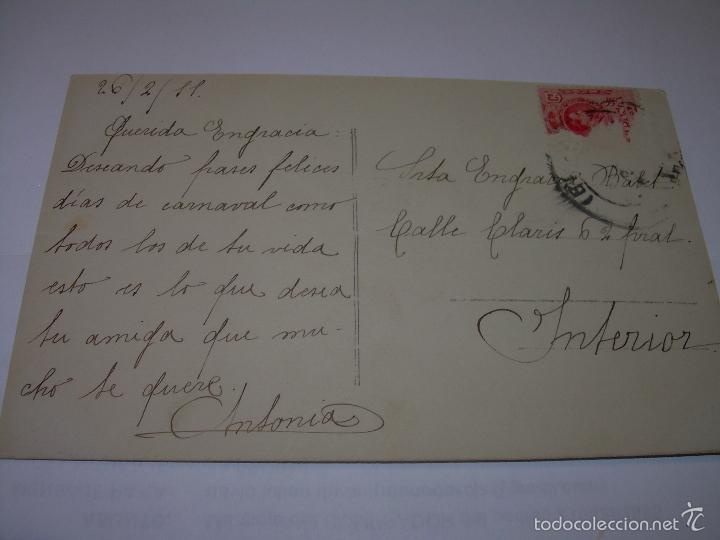 26/2/11.
Querida Engracia:
Deseando pases felices
días de carnaval como
todos los de tu vida
esto es lo que desea
tu amiga que mu-
cho te quere.
Antonia
Srta Engracia
Calle Claris 62 pral.
Interior.
todocoleccion.net